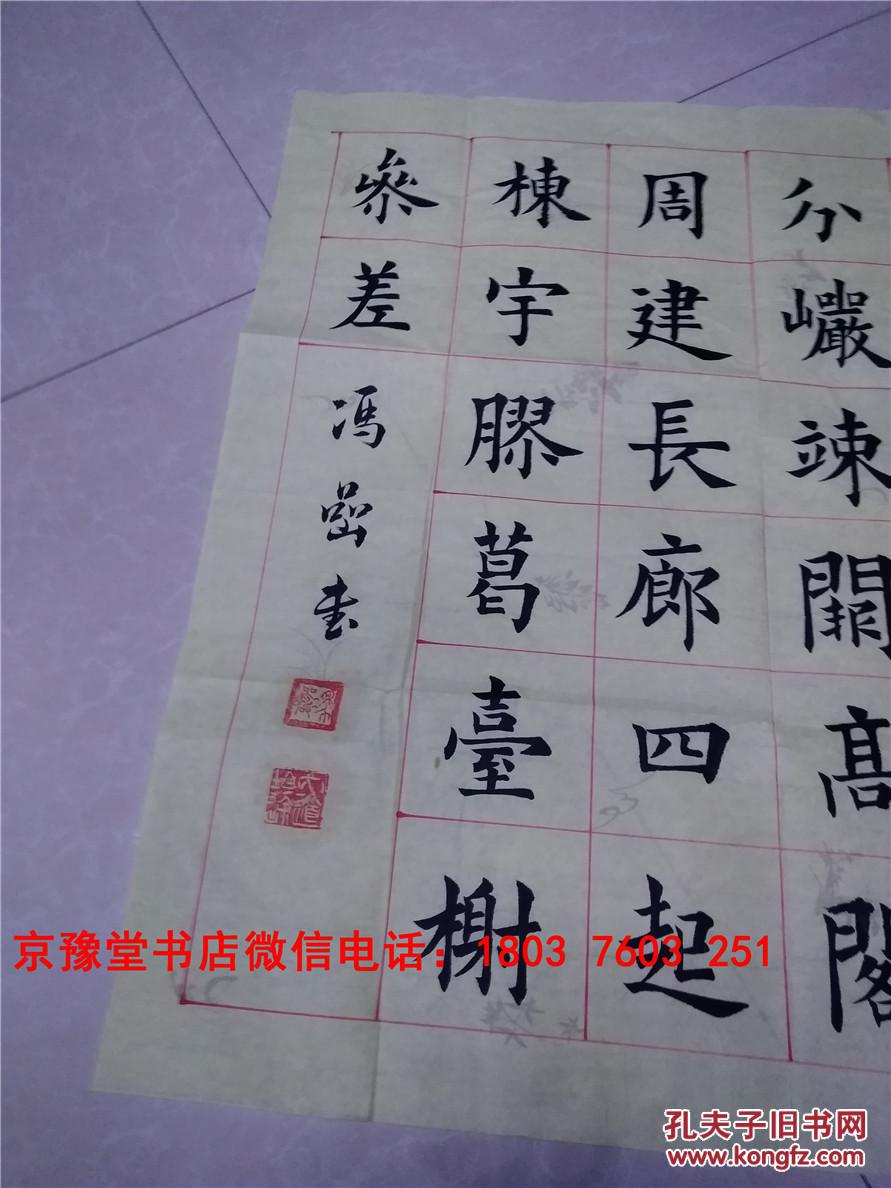 分巗竦闕髙閣
周建長廊四起
棟宇膠葛臺榭
參差
冯嵒书
京豫堂书店微信电话：1803 7603 251
孔夫子旧书网
www.kongfz.com